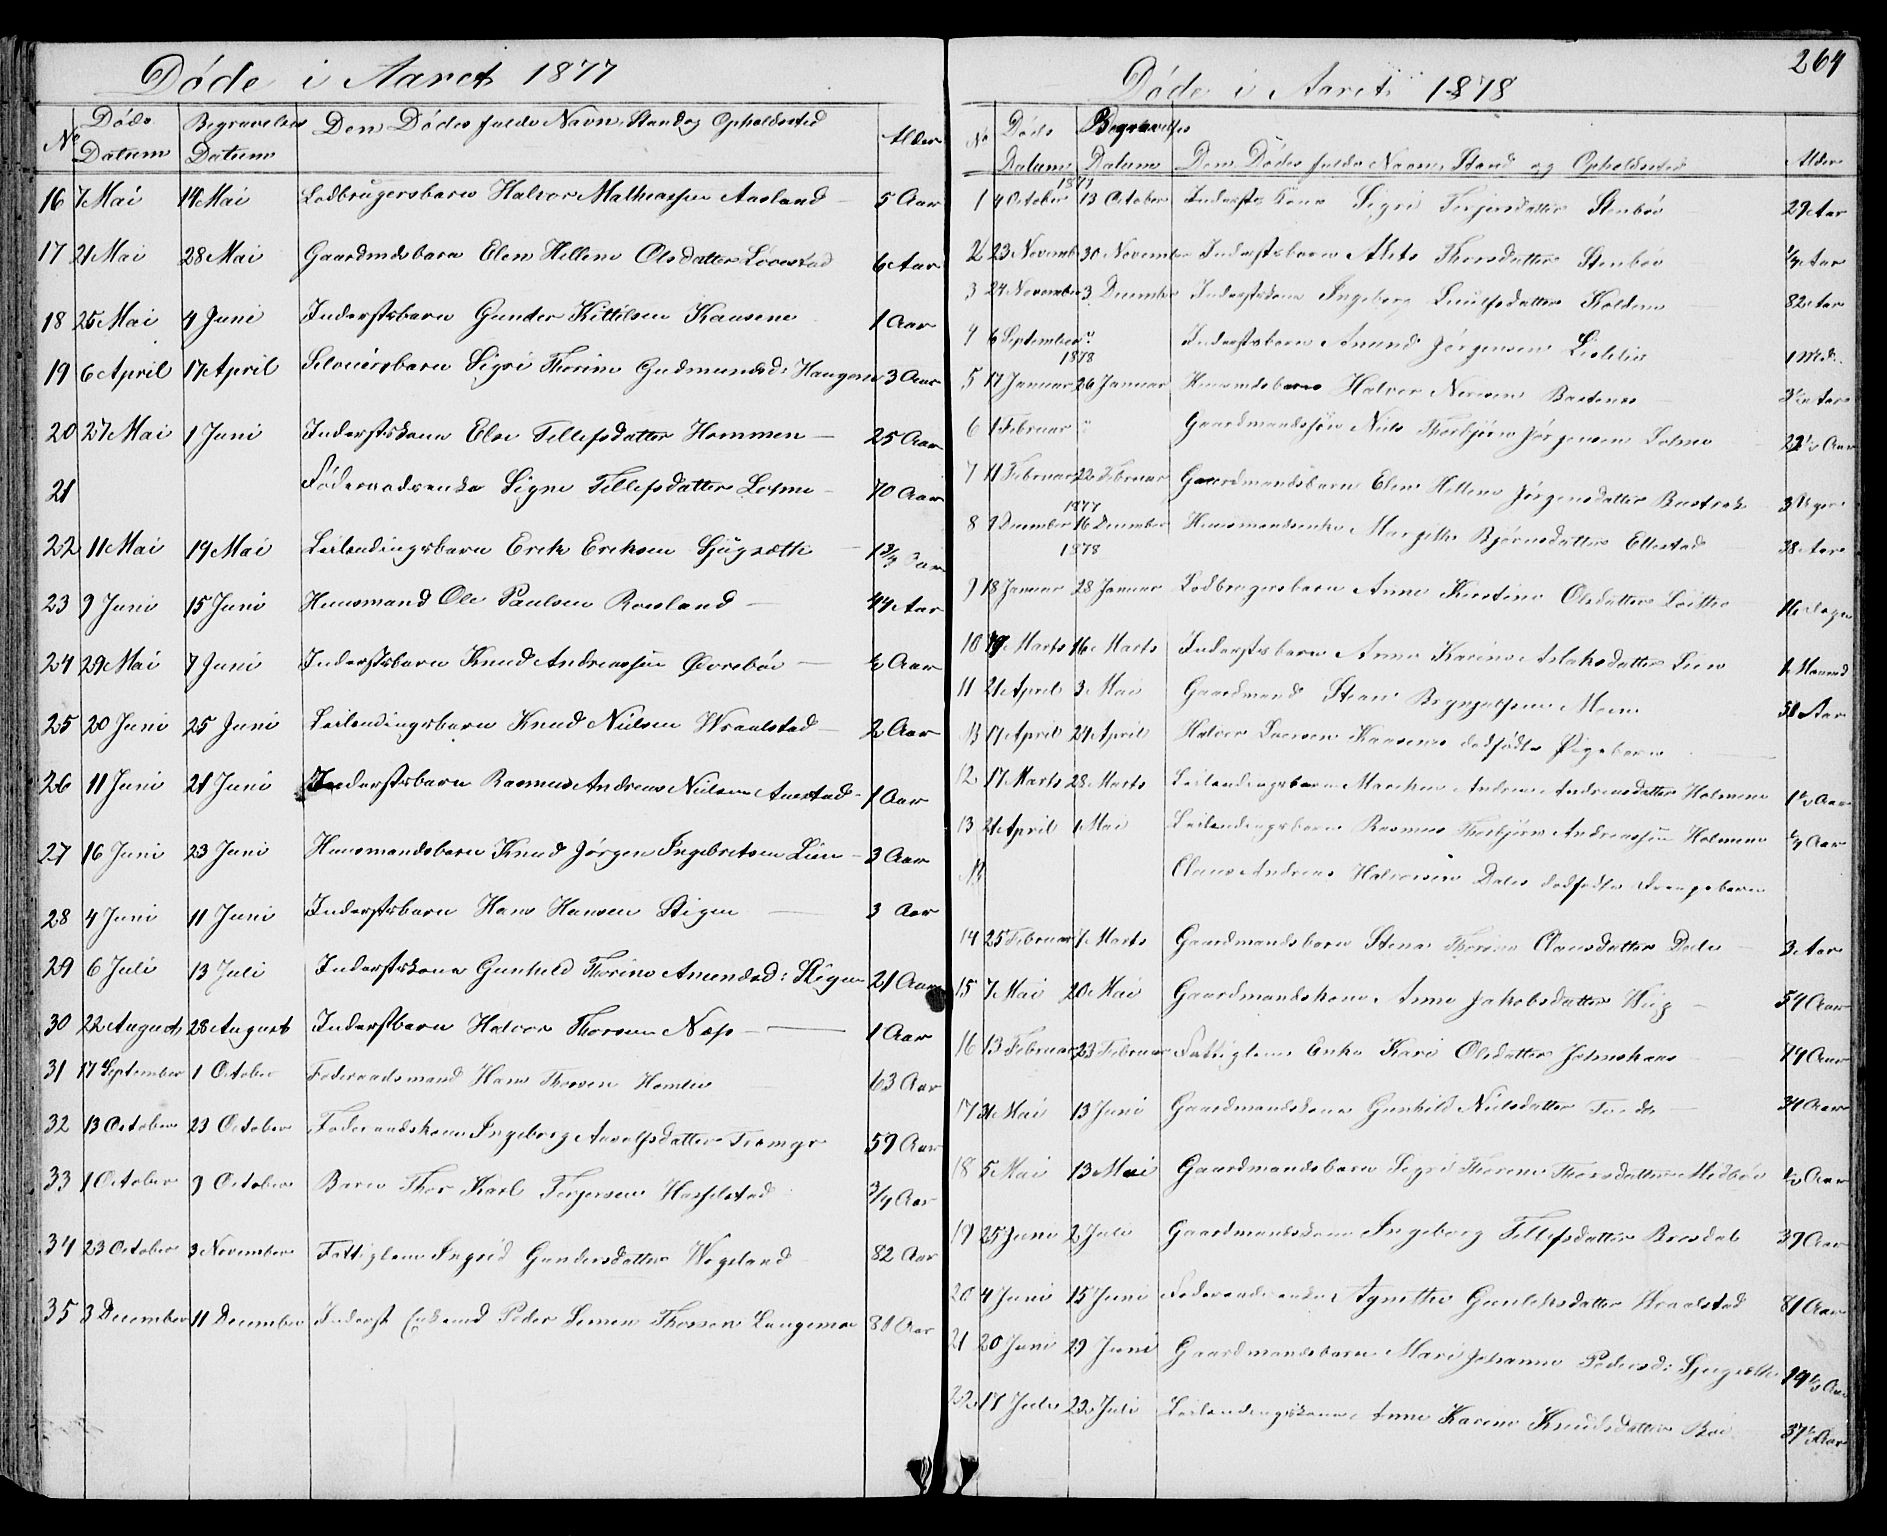 Døde i Aaret 1877
No Døds Datum Begravelses Datum Den Dødes fulde Navn, Stand og Opholdssted Alder
16 7 Mai 14 Mai Lodbrugersbarn Halvor Mathiassen Aasland 5 Aar
17 21 Mai 28 Mai Gaardmdsbarn Elen Hellene Olsdatter 6 Aar
18 25 Mai 4 Juni Inderstsbarn Gunder Kittilsen Kaasene 1 Aar
19 6 April 17 April Selveiersbarn Sigri Thorine Gudmundsd: Haugene 3 Aar
20 27 Mai 1 Juni Inderstskone Else Tellefsdatter Hommen 25 Aar
21 Føderaadsenke Signe Tellefsdatter 70 Aar
22 11 Mai 19 Mai Leilendingsbarn Erik Eriksen 1 3/4 Aar
23 9 Juni 15 Juni Huusmand Ole Paulsen Rosland 44 Aar
24 29 Mai 7 Juni Inderstsbarn Knud Andreassen Øvrebøe Aar
25 20 Juni 25 Juni Leilendingsbarn Knud Nielsen Wraalstad 2 Aar
26 11 Juni 21 Juni Inderstsbarn Rasmus Andreas Nielsen 1 Aar
27 16 Juni 23 Juni Huusmandsbarn Knud Jørgen Ingebretsen Lien 3 Aar
28 4 Juni 11 Juni Inderstsbarn Hans Hansen Stigen 3 Aar
29 6 Juli 13 Juli Inderstskone Gunhild Thorine Amundsd: Stigen 21 Aar
30 22 August 28 August Inderstbarn Halvor Thorsen Næs 1 Aar
31 17 September 1 October Føderaadsmand Hans Thorsen 63 Aar
32 13 October 23 October Føderaadskone Ingeborg Anolfsdatter Tromyr 59 Aar
33 1 October 9 October Barn Thor Karl Terjersen Hasselstad 3/4 Aar
34 23 October 3 November Fattiglem Ingrid Gundersdatter Wegeland 82 Aar
35 3 December 11 December Inderst Peder Simen Thorsen Langemoe 81 Aar
264
Døde i Aaret 1878
No Døds Datum Begravelses Datum Den Dødes fulde Navn, Stand og Opholdssted Alder
1877
1 4 October 13 October Inderstskone Sigri Terjersdatter Stenbøe 29 Aar
2 23 November 30 November Inderstsbarn Thorsdatter Stenbøe 1/4 Aar
3 24 November 3 December Inderstskone Ingeborg 82 Aar
4 6 September " Inderstsbarn Anund Jørgensen
1878
5 17 Januar 26 Januar Huusmdsbarn Halvor Aar
6 1 Februar " Gaardmandssøn Niels Thorbjørn Jørgensen Aar
7 11 Februar 22 Februar Gaardmandsbarn Elen Hellene Jørgensdatter 3
1877
8 9 December 16 December Huusmandsenke Margithe Bjørnsdatter Ettestad 38 Aar
1878
9 18 Januar 28 Januar Lodbrugersbarn Anne Kirstine Olsdatter 16 Dage
10 9 Marts 16 Marts Inderstsbarn Anne Karine Aslaksdatter Lien 1 Maaned
11 21 April 3 Mai Gaardmand Moen 51 Aar
17 April 24 April Halvor Kaasenes dødfødte Pigebarn
12 17 Marts 28 Marts Leilendingsbarn Maren Andrea Andreasdatter Holmene 1 1/2 Aar
13 21 April 1 Mai Leilendingsbarn Rasmus Thorbjørn Andreassen Holmene Aar
Claus Andreas Halvorsen Dales dødfødte Drengebarn
14 25 Februar 7 Marts Gaardmandsbarn Stena Thorine Clausdatter Dale 3 Aar
15 7 Mai 20 Mai Gaardmandskone Anne Jakobsdatter 54 Aar
16 13 Februar 23 Februar Fattiglem Enke Kari Olsdatter 74 Aar
17 31 Mai 13 Juni Gaardmandskone Gunhild Nielsdatter 34 Aar
18 5 Mai 13 Mai Gaardmandsbarn Sigri Thorine Thorsdatter Midbøe 1/2 Aar
19 25 Juni 2 Juli Gaardmandskone Ingeborg Tellefsdatter 39 Aar
20 4 Juni 15 Juni Føderaadsenke Agnethe Gunleksdatter Wraalstad 81 Aar
21 20 Juni 29 Juni Gaardmandsbarn Mari Johanne Pedersd: Aar
22 17 Juli 22 Juli Leilendingskone Anne Karine Knudsdatter Bøe 37 1/2 Aar